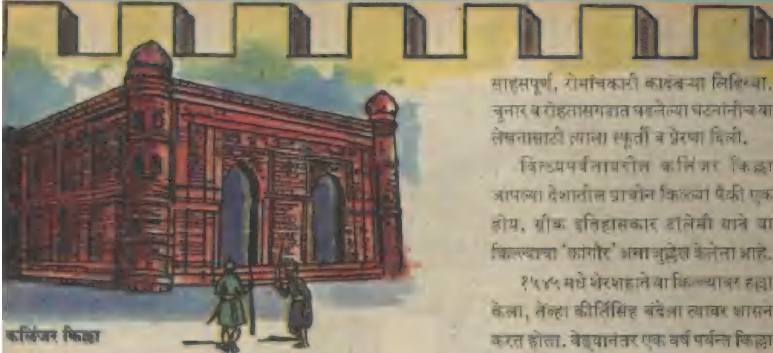 साहसपूर्ण, रोमांचकारी कादंबऱ्या लिहिल्या.
चुनार व रोहतासगडात घडलेल्या घटनांनीच या
लेखनासाठी त्याला स्फूर्ती व प्रेरणा दिली.
विन्ध्यपर्वतावरील कलिंजर किल्ला
आपल्या देशातील प्राचीन किल्ल्यां पैकी एक
होय. ग्रीक इतिहासकार टॉलेमी याने या
किल्ल्याचा 'कांगोर' असा उल्लेख केलेला आहे.
१५४५ मधे शेरशहाने या किल्ल्यावर हल्ला
केला, तेव्हा कीर्तिसिंह बंदेला त्यावर शासन
करत होता. वेढ्यानंतर एक वर्ष पर्यन्त किल्ला
कलिंजर किल्ला